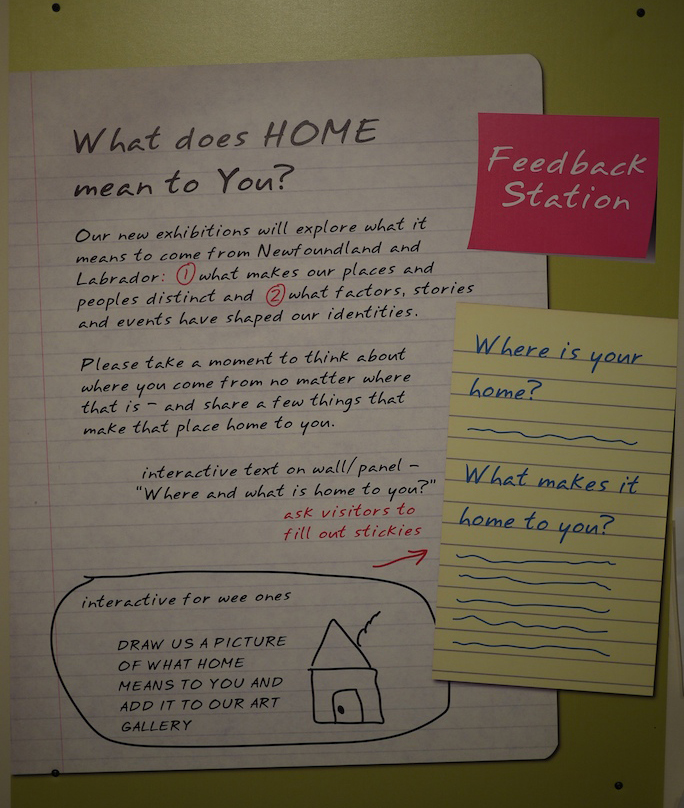 What does HOME
mean to You?
Our new exhibitions will explore what it
means to come from Newfoundland and
Labrador: 1 what makes our places and
peoples distinct and 2 what factors, stories
and events have shaped our identities.
Please take a moment to think about
where you come from no matter where
that is - and share a few things that
make that place home to you.
interactive text on wall/panel -
"Where and what is home to you?"
ask visitors to
fill out stickies
interactive for wee ones
DRAW US A PICTURE
OF WHAT HOME
MEANS TO YOU AND
ADD IT TO OUR ART
GALLERY
Feedback
Station
Where is your
home?
What makes it
home to you?